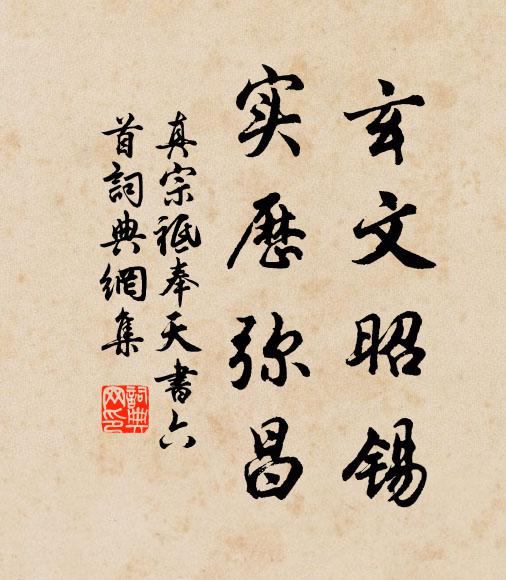 玄文昭锡
实历弥昌
真宗祗奉天書六
首詞典網集
詞典
网印